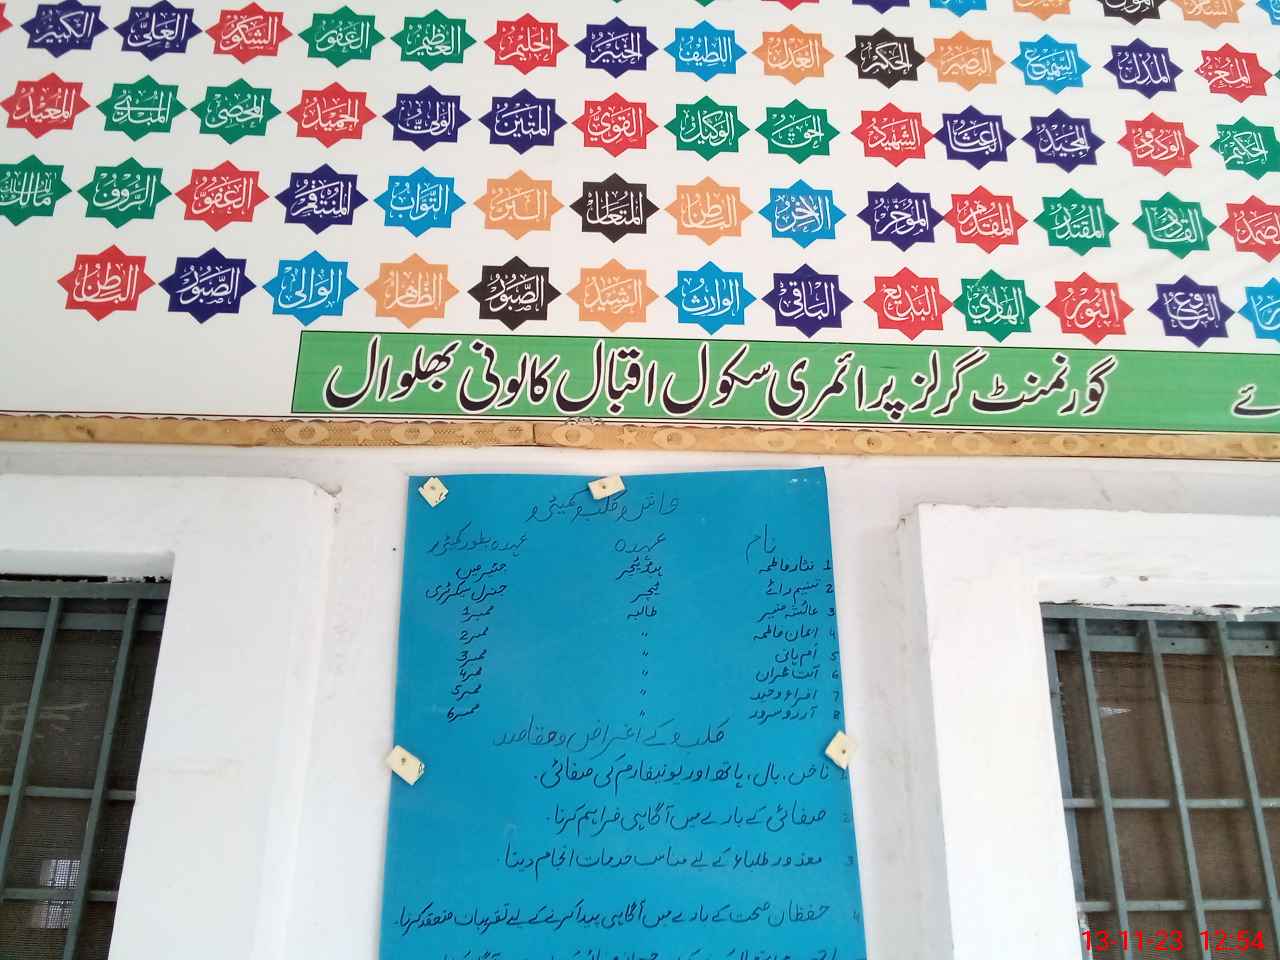 الكبير العلي الشكور الغفور العظيم الحليم الخبير اللطيف العدل الحكم البصير السميع المذل المعز
المعيد المبدئ المحصي الحميد الولي المتين القوي الوكيل الحق الشهيد الباعث المجيد الودود الحكيم
مالك الرءوف العفو المنتقم التواب البر المتعال الباطن الآخر المؤخر المقدم المقتدر القادر الصمد
الباطن الصبور الوالي الظاهر الصبور الرشيد الوارث الباقي البديع الهادي النور النافع
گورنمنٹ گرلز پرائمری سکول اقبال کالونی بھلوال
واش کلب کمیٹی
نام عہدہ عہدہ بطور کمیٹی
1 نثار فاطمہ ہیڈ ٹیچر چیئرمین
2 ٹیچر جنرل سیکرٹری
3 عائشہ منیر طالبہ ممبر 1
4 ایمان فاطمہ " ممبر 2
5 اُم ہانی " ممبر 3
6 " ممبر 4
7 " ممبر 5
8 آرزو سرور " ممبر 6
کلب کے اغراض و مقاصد
1 ناخن، بال، ہاتھ اور یونیفارم کی صفائی۔
2 صفائی کے بارے میں آگاہی فراہم کرنا۔
3 معذور طلباء کے لیے مناسب خدمات انجام دینا۔
4 حفظان صحت کے بارے میں آگاہی پیدا کرنے کے لیے تقریبات منعقد کرنا۔
13-11-23 12:54